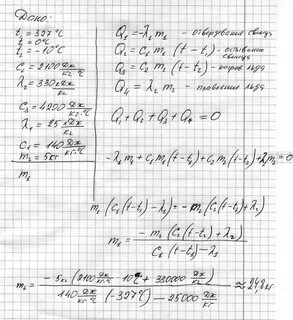 Дано:
t₁ = 327°C
t = 0°C
t₂ = -10°C
C₂ = 2100 Дж/кг·°C
λ₂ = 330 кДж/кг
C₃ = 4200 Дж/кг·°C
λ₁ = 25 кДж/кг
C₁ = 140 Дж/кг·°C
m₂ = 5 кг
m₁
Q₁ = -λ₁ m₁ - отвердевание свинца
Q₂ = C₁ m₁ (t - t₁) - остывание свинца
Q₃ = C₂ m₂ (t - t₂) - нагрев льда
Q₄ = λ₂ m₂ - плавление льда
Q₁ + Q₂ + Q₃ + Q₄ = 0
-λ₁ m₁ + C₁ m₁ (t - t₁) + C₂ m₂ (t - t₂) + λ₂ m₂ = 0
m₁ (C₁ (t - t₁) - λ₁) = -m₂ (C₂ (t - t₂) + λ₂)
m₁ = -m₂ (C₂ (t - t₂) + λ₂) / C₁ (t - t₁) - λ₁
m₁ = -5 кг (2100 Дж/кг·°C · 10°C + 330000 Дж/кг) / 140 Дж/кг·°C (-327°C) - 25000 Дж/кг ≈ 24,8 кг